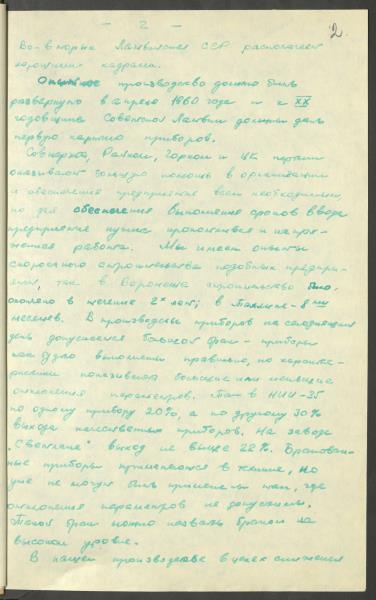 - 2 -
2.
Во-вторых Латвийская ССР располагает
хорошими кадрами.
Опытное производство должно быть
развернуто в апреле 1960 года и к XX
годовщине Советской Латвии должны дать
первую партию приборов.
Совнархоз, Райком, Горком и ЦК партии
оказывают большую помощь в организации
и обеспечении предприятия всем необходимым,
но для обеспечения выполнения сроков ввода
предприятия нужна
работа. Мы имеем опыт
скоростного строительства подобных предприя-
тий, так в Воронеже строительство было
в течение 2х лет; в Таллине - 8ми
месяцев. В производстве приборов на сегодняшний
день допускается большой брак - приборы
как будто выполнены правильно, но
показывают большие или меньшие
отклонения параметров. Так в НИИ-35
по одному прибору 20%, а по другому 30%
выхода качественных приборов. На заводе
"Светлана" выход не выше 22%. Бракован-
ные приборы применяются в технике, но
уже не могут быть применены там, где
отклонения параметров не допустимы.
Такой брак можно назвать браком на
высоком уровне.
В нашем производстве в целях снижения